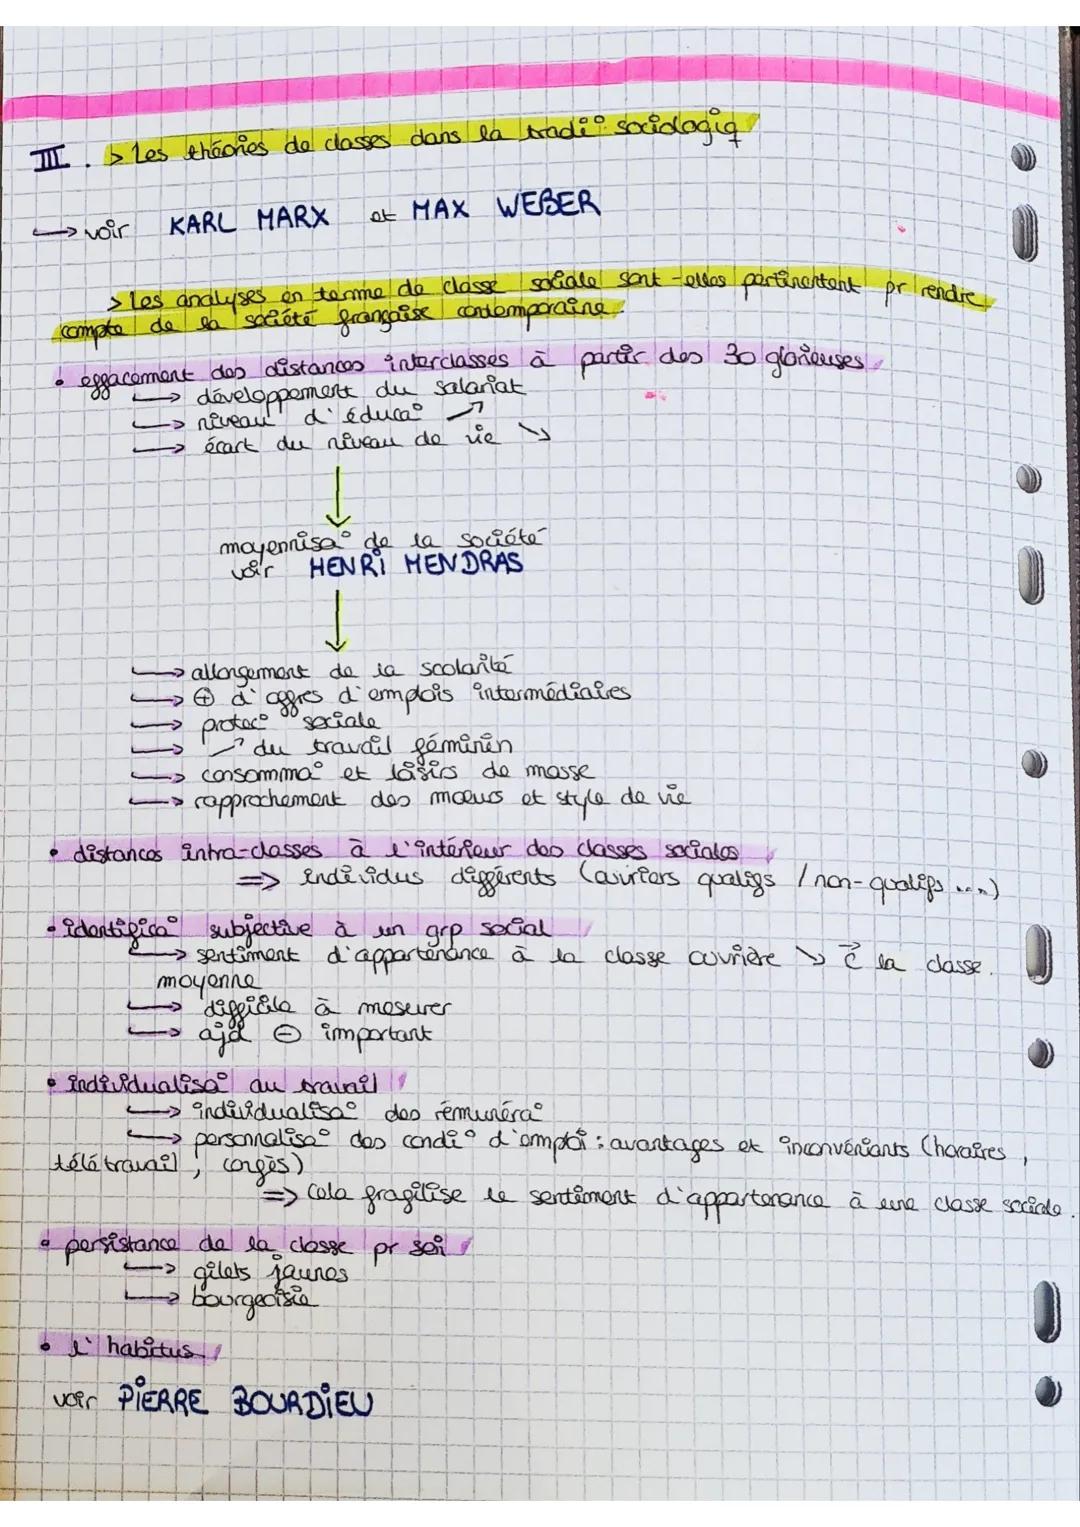 III. > Les théories de classes dans la tradi° sociologiq
↳ voir KARL MARX et MAX WEBER
> Les analyses en terme de classe sociale sont-elles pertinentent pr rendre
compte de la société française contemporaine.
• effacement des distances interclasses à partir des 30 glorieuses
↳ développement du salariat
↳ niveau d'éduca° ↗
↳ écart du niveau de vie ↘
↓
moyennisa° de la société
voir HENRI MENDRAS
↓
↳ allongement de la scolarité
↳ ⊕ d'offres d'emplois intermédiaires
↳ protec° sociale
↳ ↗ du travail féminin
↳ consomma° et loisirs de masse
↳ rapprochement des mœurs et style de vie
• distances intra-classes à l'intérieur des classes sociales
=> individus différents (ouvriers qualifs / non-qualifs ...)
• identifica° subjective à un grp social
↳ sentiment d'appartenance à la classe ouvrière ↘ c̄ la classe.
moyenne
↳ difficile à mesurer
↳ ajd ⊖ important
• individualisa° au travail
↳ individualisa° des rémunéra°
↳ personnalisa° des condi° d'emploi : avantages et inconvénients (horaires,
télétravail, congés)
=> Cela fragilise le sentiment d'appartenance à une classe sociale.
• persistance de la classe pr soi
↳ gilets jaunes
↳ bourgeoisie
• l'habitus
voir PIERRE BOURDIEU